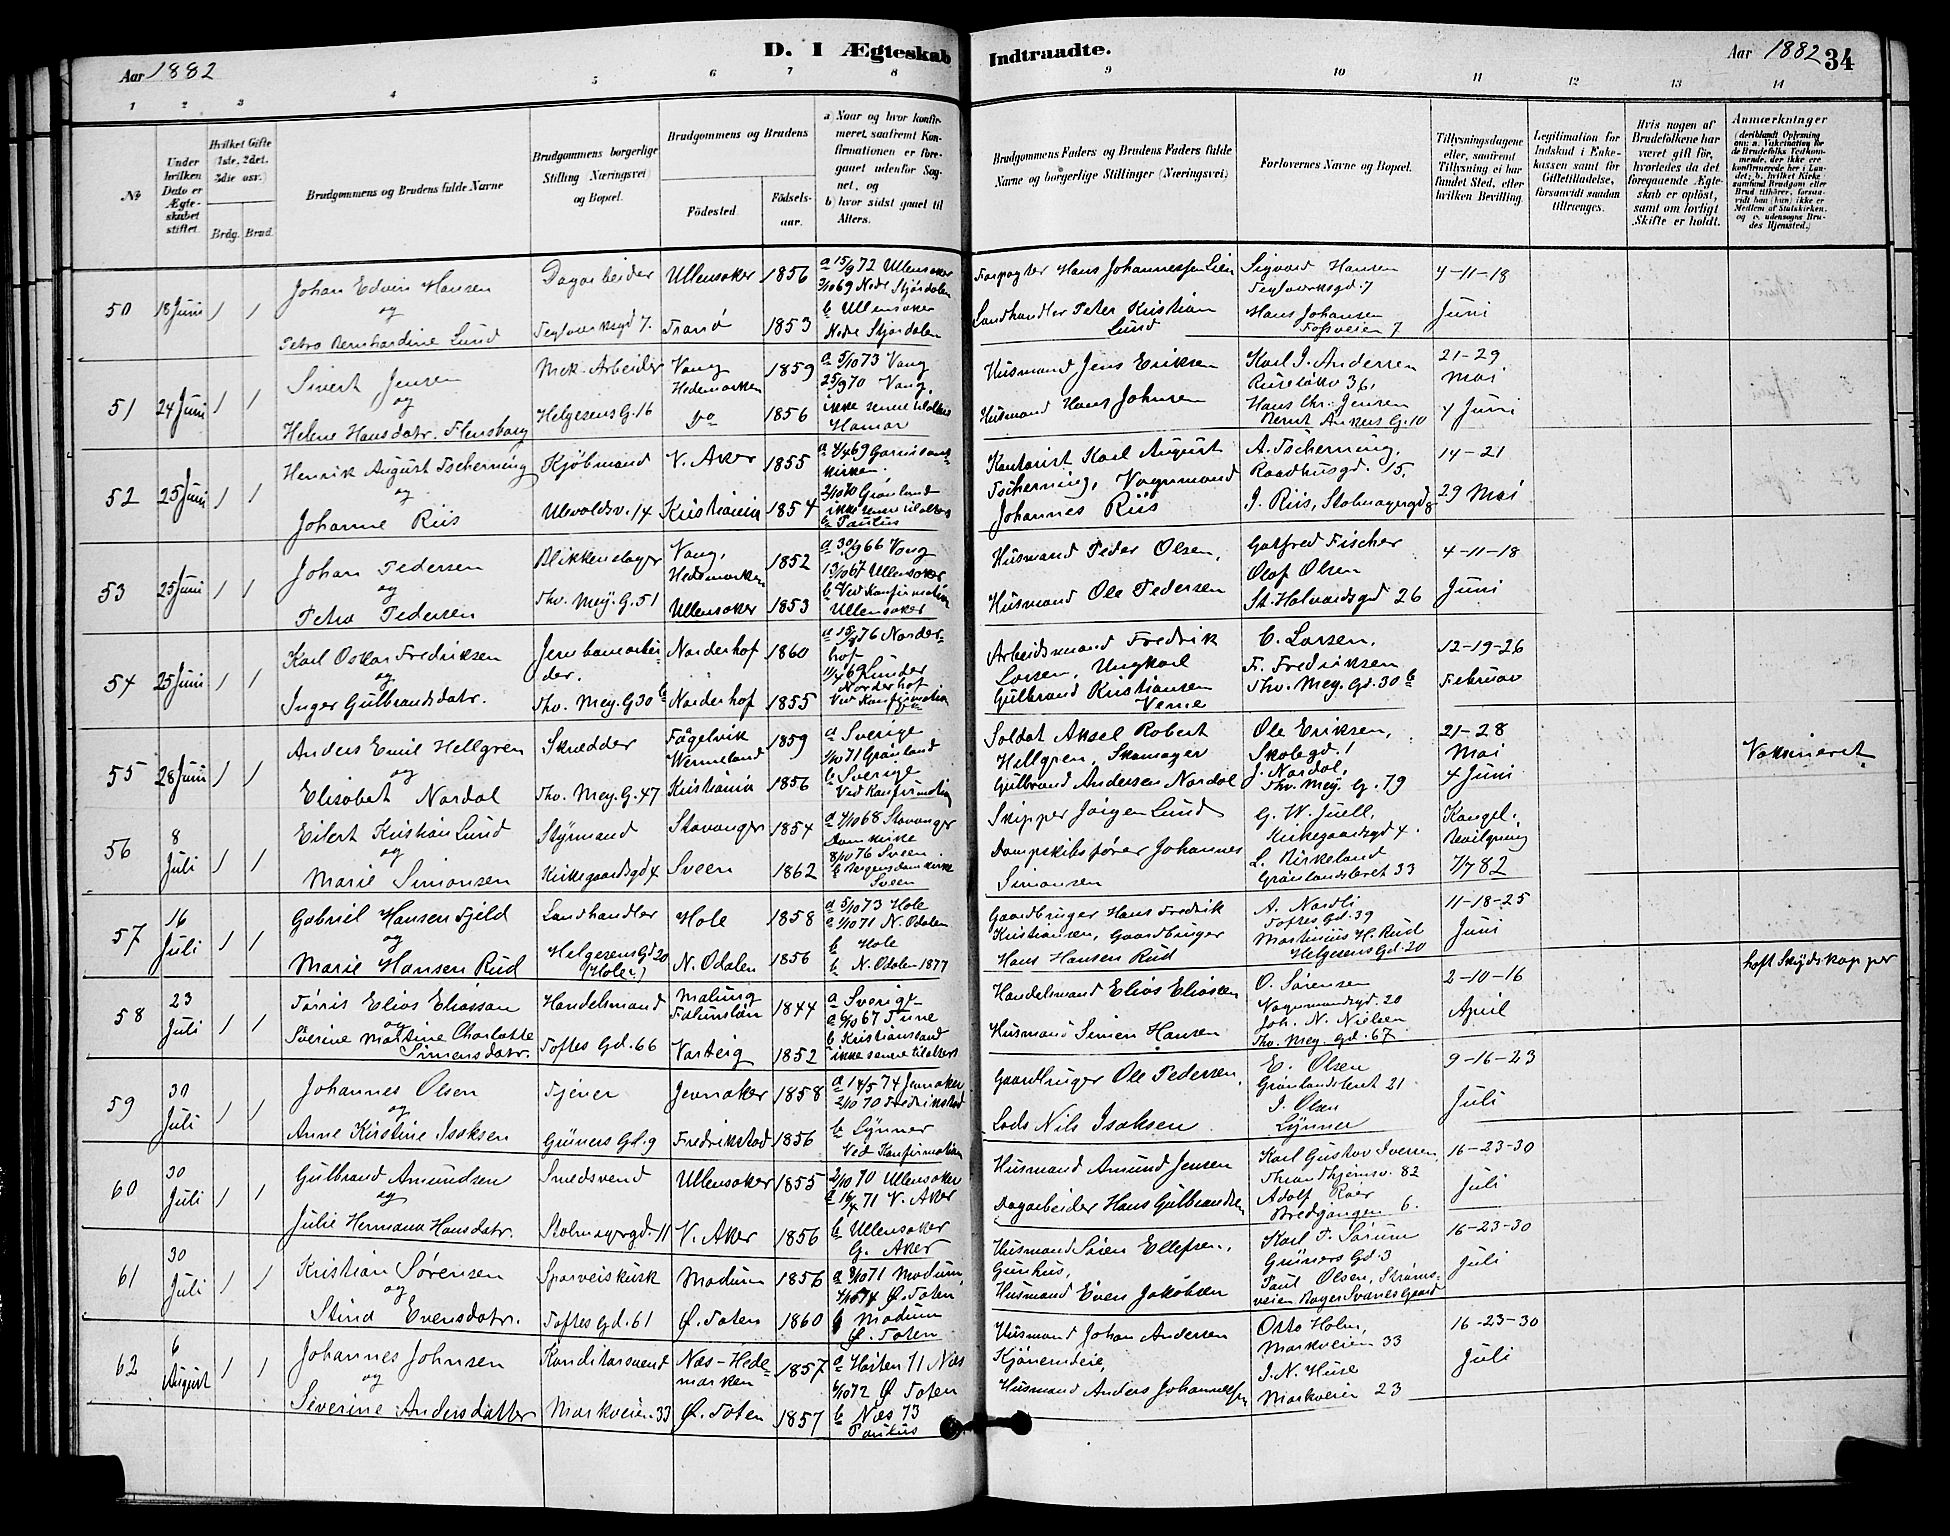 D. I Ægteskab Indtraadte.
Aar 1882
Aar 1882 34
1 2 3 4 5 6 7 8 9 10 11 12 13 14
No
Under hvilken Dato er Ægteskabet stiftet.
Hvilket Gifte (1ste, 2det, 3die osv.)
Brdg. Brud.
Brudgommens og Brudens fulde Navne
Brudgommens borgerlige Stilling (Næringsvei) og Bopæl.
Brudgommens og Brudens
Födested.
Födselsaar.
a) Naar og hvor konfirmeret, saafremt Konfirmationen er foregaaet udenfor Sognet, og
b) hvor sidst gaaet til Alters.
Brudgommens Faders og Brudens Faders fulde Navne og borgerlige Stillinger (Næringsvei)
Forlovernes Navne og Bopæl.
Tillysningsdagene eller, saafremt Tillysning ei har fundet Sted, efter hvilken Bevilling.
Legitimation for Indskud i Enkekassen samt for Giftetilladelse, forsaavidt saadan tiltrænges.
Hvis nogen af Brudefolkene har været gift för, hvorledes da det foregaaende Ægteskab er oplöst, samt om lovligt Skifte er holdt.
Anmærkninger
50 18 Juni 1 1
Johan Edvin Hansen
og
Petra Bernhardine Lund
Dagarbeider
Teglverksgd 7.
Ullensaker 1856
Tranö 1853
a 15/9 72 Ullensaker
3/10 69 Nedr Stjørdalen
b Ullensaker
Nedr Stjørdalen
Forpagter Hans Johannessen Lien
Landhandler Peter Kristian
Lund
Sigvard Hansen
Teglverksgd. 7
Hans Johansen
Fossveien 7
4-11-18
Juni
51 24 Juni 1 1
Sivert Jensen
og
Helene Hansdatr. Flensborg
Mek. Arbeider
Helgesens G. 16
Vang
Hedemarken 1859
Do 1856
a 5/10 73 Vang
25/9 70 Vang
ikke senere til alters
Hamar
Husmand Jens Eriksen
Husmand Hans Johnsen
Karl J. Andersen
Ruseløkv 36,
Hans Chr. Jensen
Bernt Ankers G. 10
21-29
Mai
4 Juni
52 25 Juni 1 1
Henrik August Tscherning
og
Johanne Riis
Kjöbmand
Ullevoldsv. 14
V. Aker 1855
Kristiania 1854
a 4/4 69 Garnisons-
kirken.
2/10 70 Grønland
ikke senere til alters
b Paulus
Kontorist Karl August
Tscherning, Vognmand
Johannes Riis
A. Tscherning,
Raadhusgd. 15.
J. Riis, Stolmagergd 8
14-21
29 Mai
53 25 Juni 1 1
Johan Pedersen
og
Petra Pedersen
Blikkenslager
Thv. Mey. G. 51
Vang,
Hedemarken 1852
Ullensaker 1853
a 30/9 66 Vang
13/10 67 Ullensaker
b Ved Konfirmation
Ullensaker
Husmand Peder Olsen,
Husmand Ole Pedersen
Gotfred Fischer
Olaf Olsen
St. Halvardsgd 26
4-11-18
Juni
54 25 Juni 1 1
Karl Oskar Fredriksen
og
Inger Gulbrandsdatr.
Jernbanearbei-
der.
Thv. Mey. G 30 b
Norderhof 1860
Norderhof 1855
Norder-
hof
Lunder
Norderhof
Ved Konfirmation
Arbeidsmand Fredrik
Larsen, Ungkarl
Gulbrand Kristiansen
Verne
C. Larsen,
F. Fredriksen
Thv. Mey. Gd. 30 b
12-19-26
Februar
55 28 Juni 1 1
Anders Emil Hellgren
og
Elisabet Nordal
Skrædder
Thv. Mey. G. 47
Fågelvik
Wermeland 1859
Kristiania 1856
a Sverige
1/10 71 Grønland
b Sverige
Ved Konfirmation
Soldat Aksel Robert
Hellgren, Skomager
Gulbrand Andersen Nordal
Ole Eriksen,
Skolegd. 1
J. Nordal,
Thv. Mey. G. 79
21-28
Mai
4 Juni
Vaksineret
56 8 Juli 1 1
Eilert Kristian Lund
og
Marie Simonsen
Styrmand
Kirkegaardsgd 4
Stavanger 1854
Sveen 1862
a 4/10 68 Stavanger
Domkirke
8/10 76 Sveen
Sveen
Skipper Jørgen Lund
Dampskibsfører Johannes
Simonsen
G. W. Juell,
Kirkegaardsgd 4.
L. Birkeland
Grønlandsleret 33
Kongel.
Bevilgning
7/7 82
57 16 Juli 1 1
Gabriel Hansen Fjeld
og
Marie Hansen Rud
Landhandler
Helgesens Gd 20
(Hole)
Hole 1858
N. Odalen 1856
a 5/10 73 Hole
a 1/10 71 N. Odalen
b Hole
b N. Odalen 1877
Gaardbruger Hans Fredrik
Kristiansen, Gaardbruger
Hans Hansen Rud
A. Nordli
Toftes Gd. 39
Martinius H. Rud
Helgesens Gd. 20
11-18-25
Juni
58 23 Juli 1 1
Elias Eliassen
og
Severine Martine Charlotte
Simensdatr.
Handelsmand
Toftes Gd. 66
Malung
Falunslän 1844
Varteig 1852
a Sverige
a 6/10 67 Tune
b Kristianssand
ikke senere til alters
Handelsmand Elias Eliassen
Husmand Simen Hansen
O. Sørensen
Vognmandsgd. 20
Joh. N. Nielsen
Thv. Mey. Gd. 67
2-10-16
April
haft Skydskopper
59 30 Juli 1 1
Johannes Olsen
og
Anne Kirstine Isaksen
Tjener
Grüners Gd. 9
Jevnaker 1858
Fredrikstad 1856
a 14/5 74 Jevnaker
2/10 70 Fredrikstad
b Lynner
Ved Konfirmation
Gaardbruger Ole Pedersen,
Lods Nils Isaksen
E. Olsen
Grønlandsleret 21
J. Olsen
Lynner
9-16-23
Juli
60 30 Juli 1 1
Gulbrand Amundsen
og
Julie Hermana Hansdatr.
Smedsvend
Stolmagergd. 11
Ullensaker 1855
V. Aker 1856
2/10 70 Ullensaker
a 16/4 71 V. Aker
b Ullensaker
G. Aker
Husmand Amund Jensen
Dagarbeider Hans Gulbrandsen
Karl Gustav Iversen,
Throndhjemsv. 82
Adolf Roer
Bredgangen 6.
16-23-30
Juli
61 30 Juli 1 1
Kristian Sørensen
og
Stina Evensdatr.
Sporveiskusk
Toftes Gd. 61
Modum 1856
Ø. Toten 1860
a 8/10 71 Modum,
4/10 74 Ø. Toten
b Modum
Ø. Toten
Husmand Søren Ellefsen,
Gunhus,
Husmand Even Jakobsen
Karl F. Sørum
Grüners Gd. 3
Paul Olsen, Strøms-
veien Bager Svanes Gaard
16-23-30
Juli
62 6 August 1 1
Johannes Johnsen
og
Severine Andersdatter
Konditorsvend
Markveien 33
Næs-Hede-
marken 1857
Ø. Toten 1857
a Høsten 71 Næs
6/10 72 Ø Toten
b Næs 73
Paulus
Husmand Johan Andersen
Kjönemeie,
Husmand Anders Johannessen
Otto Holm,
Markveien 33
J. N. Huse
Markveien 23
16-23-30
Juli